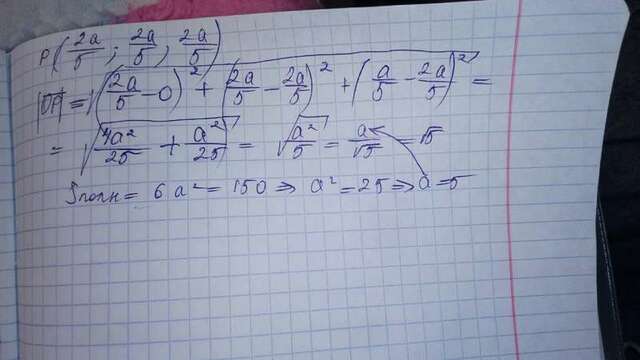 P(2a/5; 2a/5; 2a/5)
|DP| = √((2a/5 − 0)² + (2a/5 − 2a/5)² + (a/5 − 2a/5)²) =
= √(4a²/25 + a²/25) = √(a²/5) = a/√5 = √5
Sполн = 6a² = 150 ⇒ a² = 25 ⇒ a = 5